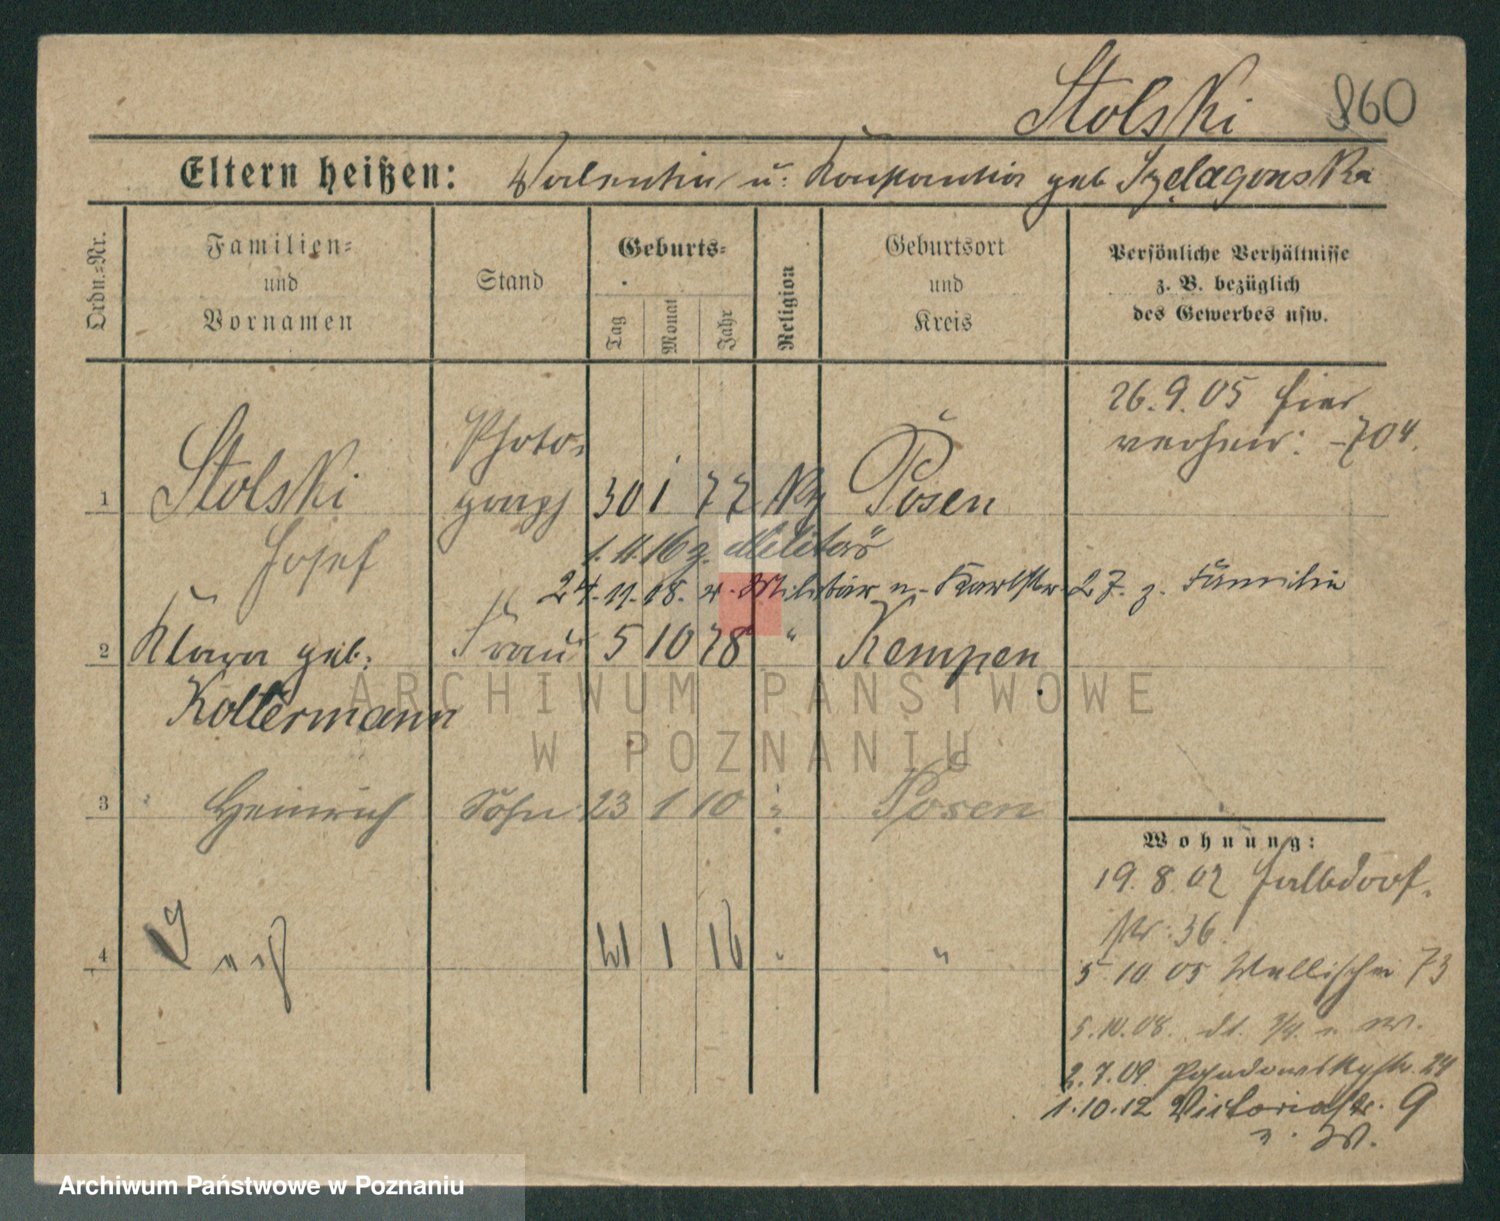 Stolski 860
Eltern heißen: Valentin u. Konstantia geb Szelagonska
Ordn.=Nr.
Familien=
und
Vornamen
Stand
Geburts=
Tag
Monat
Jahr
Religion
Geburtsort
und
Kreis
Persönliche Verhältnisse
z. B. bezüglich
des Gewerbes usw.
26.9.05 hier
verheir: -704.
1 Stolski Photo-
graph 30 1 77 Posen
Josef
1.11.16 z. Militär
24.11.18. v. Militär n. Karlstr. 27. z. Familie
2 Klara geb. Frau 5 10 78 " Kempen
Koltermann
3 Heinrich Sohn 23 1 10 Posen
4 21 1 16 " "
Wohnung:
19. 8. 02 Halbdorf-
str. 36
5 10 05 Wallischei 73
5.10.08.
2.7.09 Posadowskystr. 24
1.10.12 Victoriastr. 9
ARCHIWUM PAŃSTWOWE
W POZNANIU
Archiwum Państwowe w Poznaniu